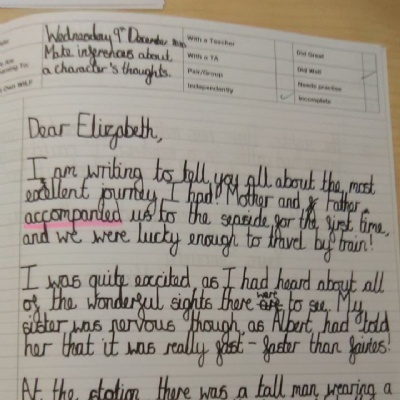 Wednesday 9th December
Make inferences about
a character's thoughts.
With a Teacher
With a TA
Pair/Group
Independently
Did Great
Did Well
Needs practice
Incomplete
Dear Elizabeth,
I am writing to tell you all about the most
excellent journey I had! Mother and Father
accompanied us to the seaside for the first time,
and we were lucky enough to travel by train!
I was quite excited, as I had heard about all
of the wonderful sights there were to see. My
sister was nervous though, as Albert had told
her that it was really fast - faster than fairies!
At the station there was a tall man wearing a